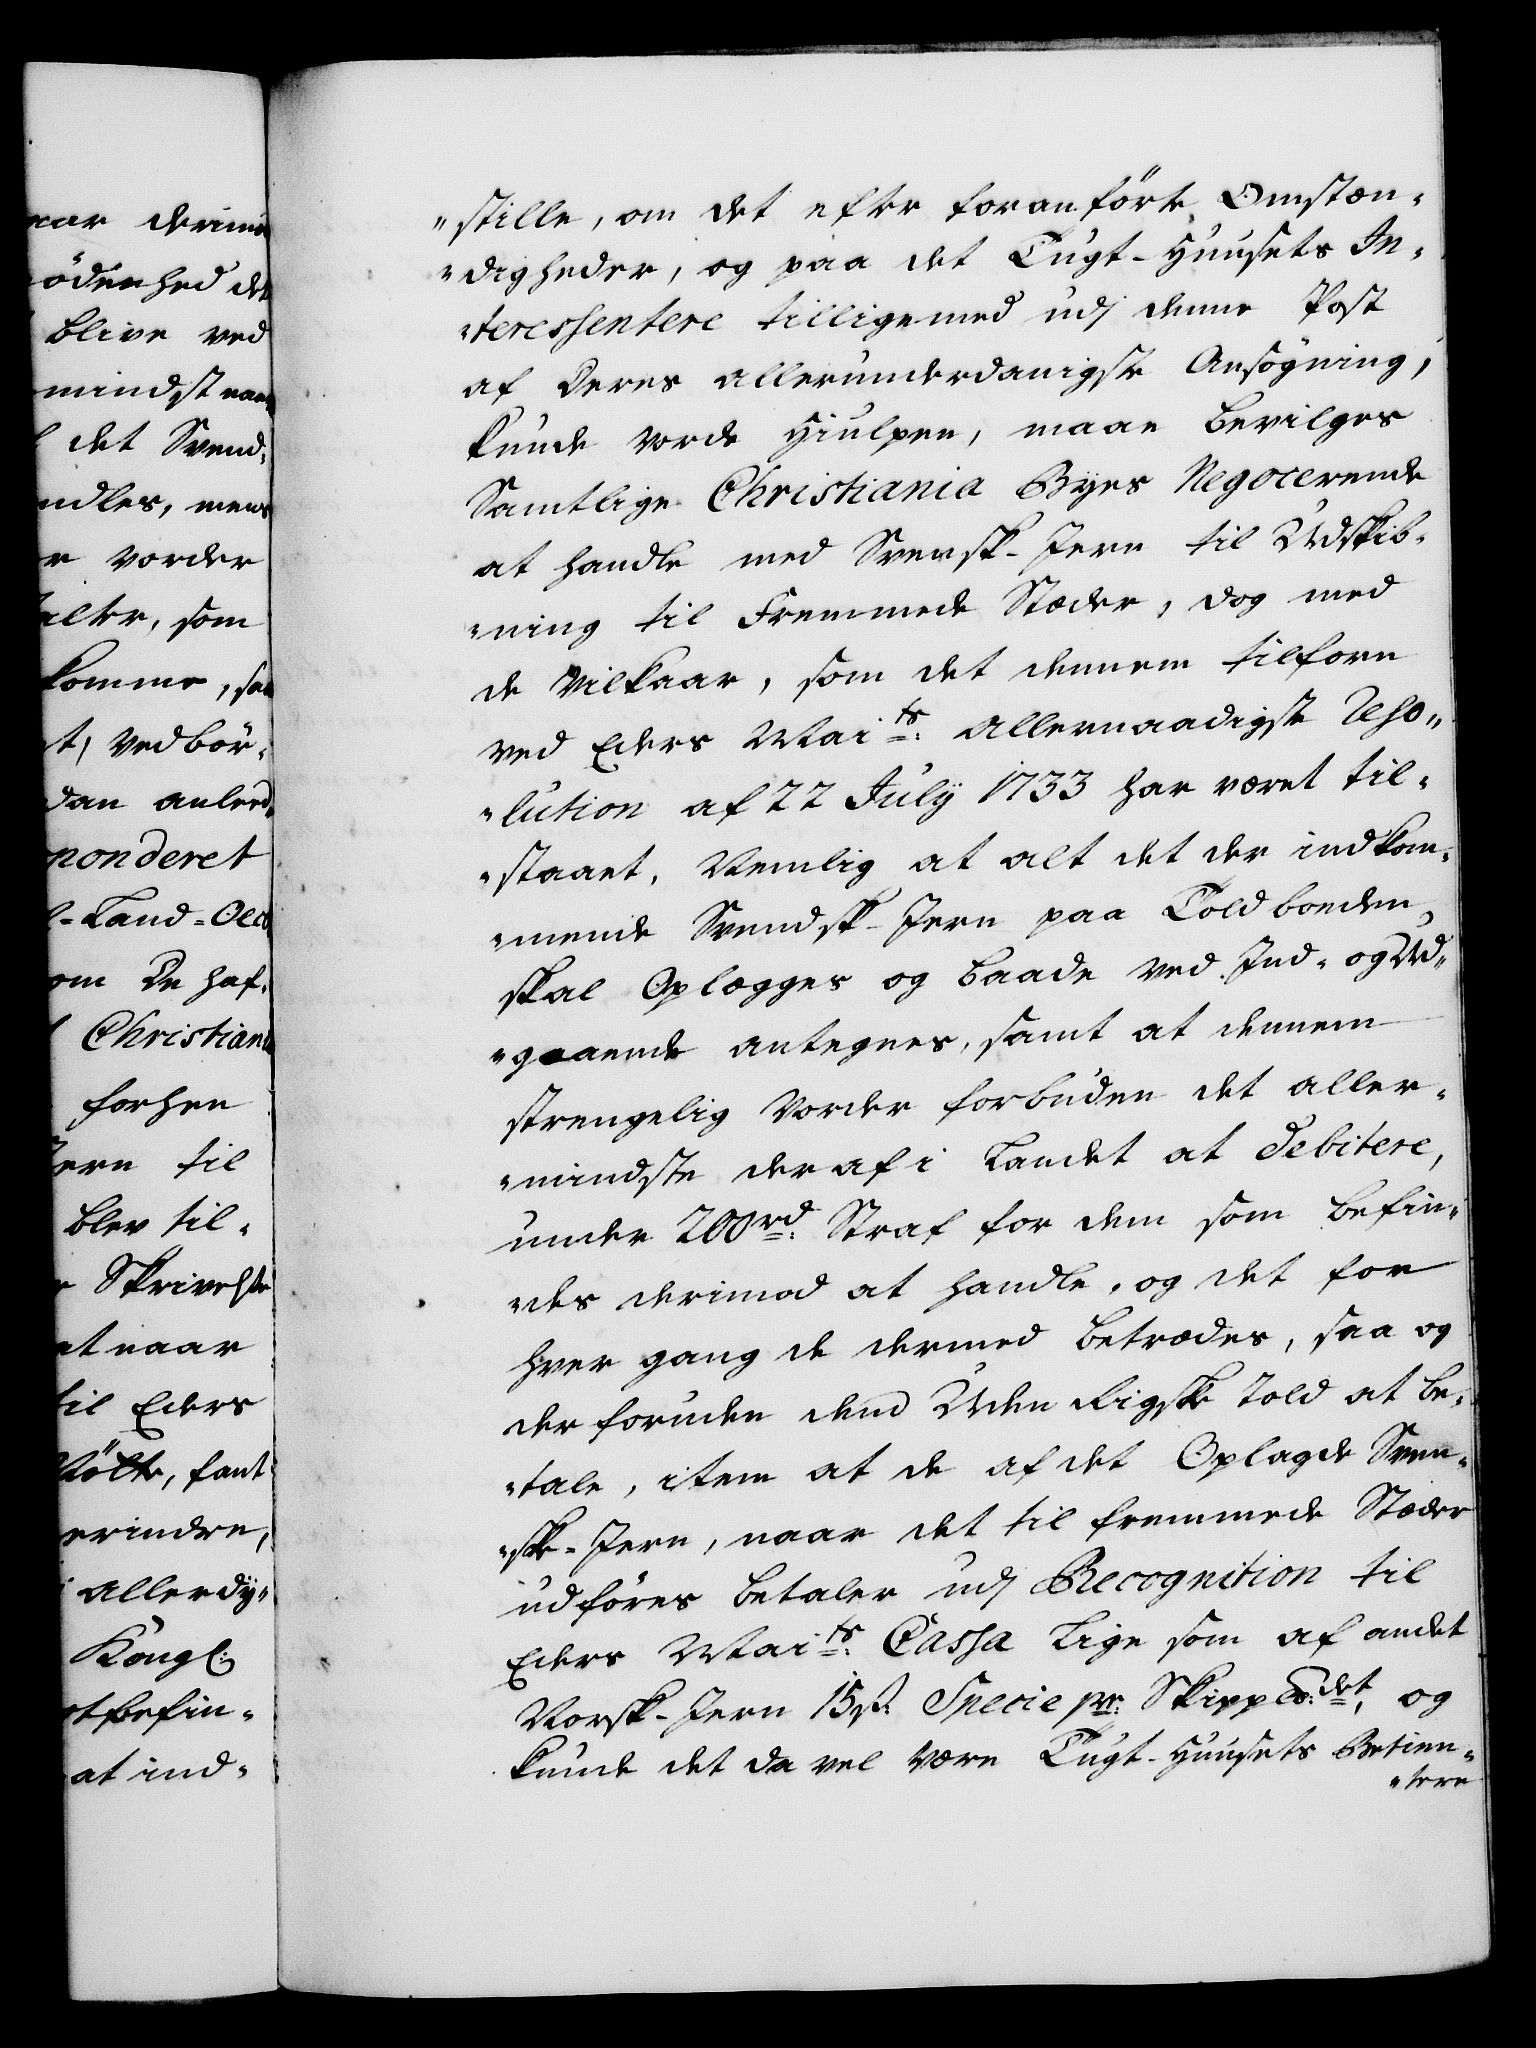 aar derimo
ödenhed det
blive ved
mindst naar
det Svend-
ndles, mens
r vorder
alter, som
komme, saa
t, vedbör-
dan anled-
ponderet
l-Land-Oeco
om De haf-
Christiania
forhen
Jern til
blev til-
Skrivelse
et naar
til Eders
fant
erindre,
allerdÿ-
Kongl:
otbefin-
at ind-
"stille, om det efter foranförte Omstæn-
"digheder, og paa det Tugt-Huusets In-
"teressentere tilligemed udj denne Post
af Deres allerunderdanigste Ansögning,
kunde vorde Hiulpen, maae bevilges
Samtlige Christiania Byes Negocerende
at handle med Svensk-Jern til Udskib-
"ning til Fremmede Stæder, dog med
de Vilkaar, som det dennem tilforn
ved Eders Maits: allernaadigste Reso"
"lution af 22 Julÿ 1733 har været til-
"staaet, Nemlig at alt det der indkom-
"mende Svendsk-Jern paa Toldboeden,
skal Oplægges og baade ved Ind- og Ud"
"gaaende antegnes, samt at dennem
strengelig vorder forbuden det aller-
"mindste deraf i Landet at debitere,
under 200rd: Straf for dem som befin"
"des derimod at handle, og det for
hver gang de dermed betrædes, saa og
der foruden dend Uden Rigske Told at be-
"tale, item at de af det Oplagde Sven-
"ske-Jern, naar det til fremmede Stæder
udföres betaler udj Recognition til
Eders Maits: Cassa Lige som af andet
Norsk-Jern 15ß. Specie pr: Skippdet, og
kunde det da vel være Tugt-Huusets Betien-
"tere